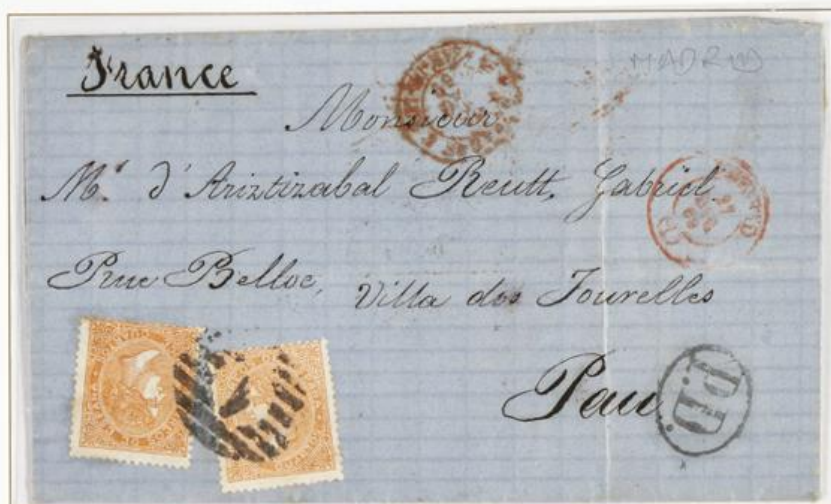 France
MADRID
Monsieur
Mr. d'Ariztizabal Reutt, Gabriel
Rue Belloc, Villa dos Tourelles
Pau
P.D.